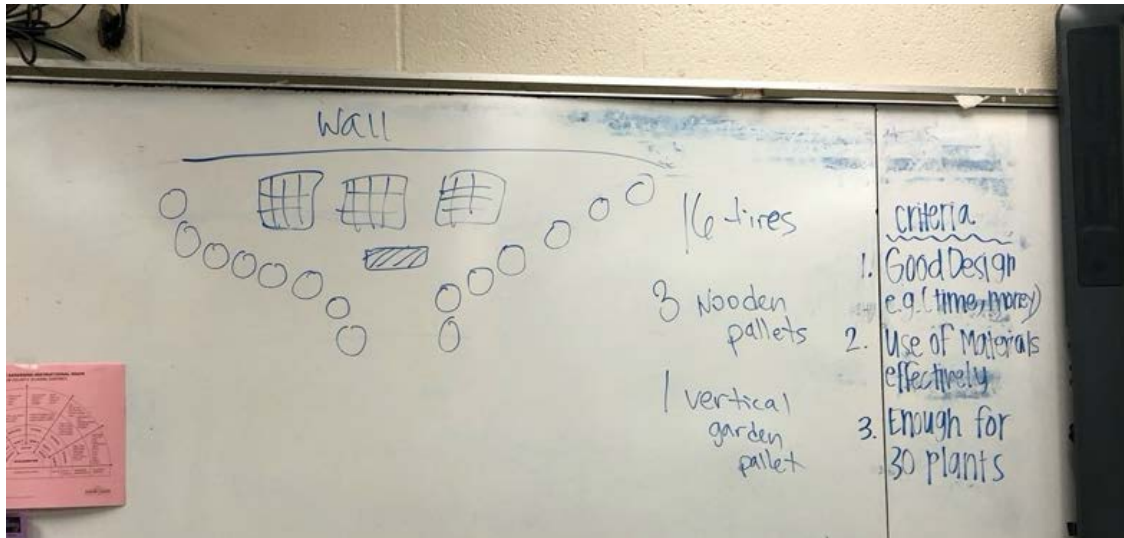 Wall
16 tires
3 Wooden
pallets
1 vertical
garden
pallet
criteria
1. Good Design
e.g. (time, money)
2. Use of Materials
effectively
3. Enough for
30 plants